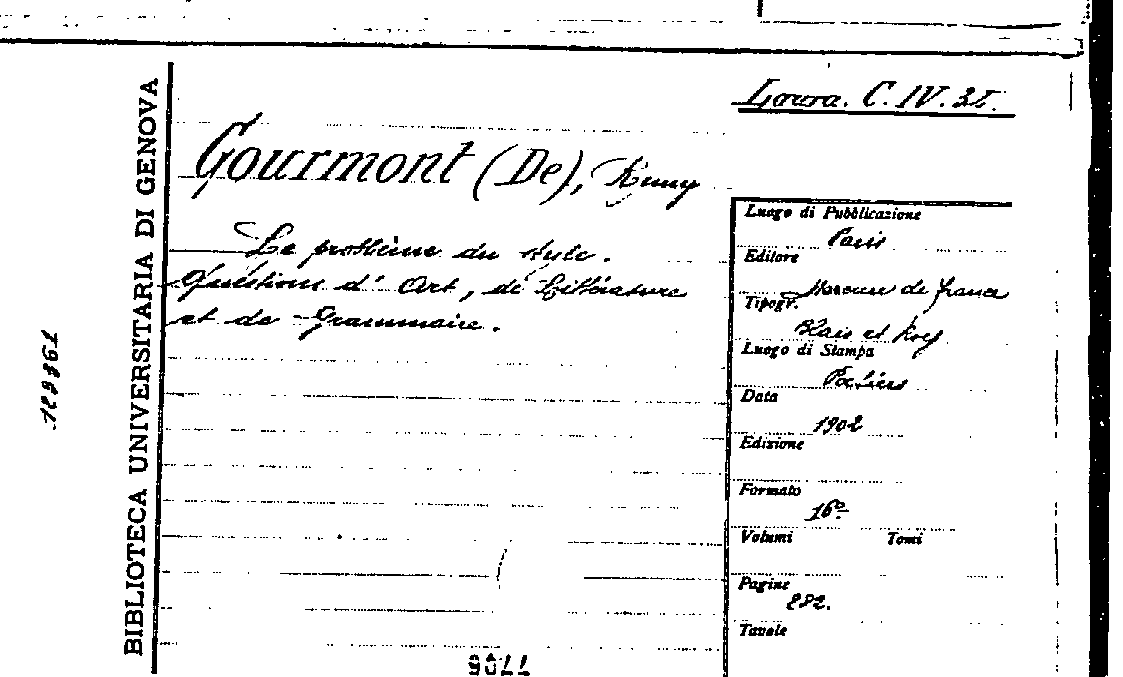 BIBLIOTECA UNIVERSITARIA DI GENOVA
Gourmont (De), Remy
Le problème du style.
Questions d'Art, de Littérature
et de Grammaire.
Luogo di Pubblicazione
Paris
Editore
Mercure de France
Tipogr.
Blais et Roy
Luogo di Stampa
Poitiers
Data
1902
Edizione
Formato
16º
Volumi Tomi
Pagine
Tavole